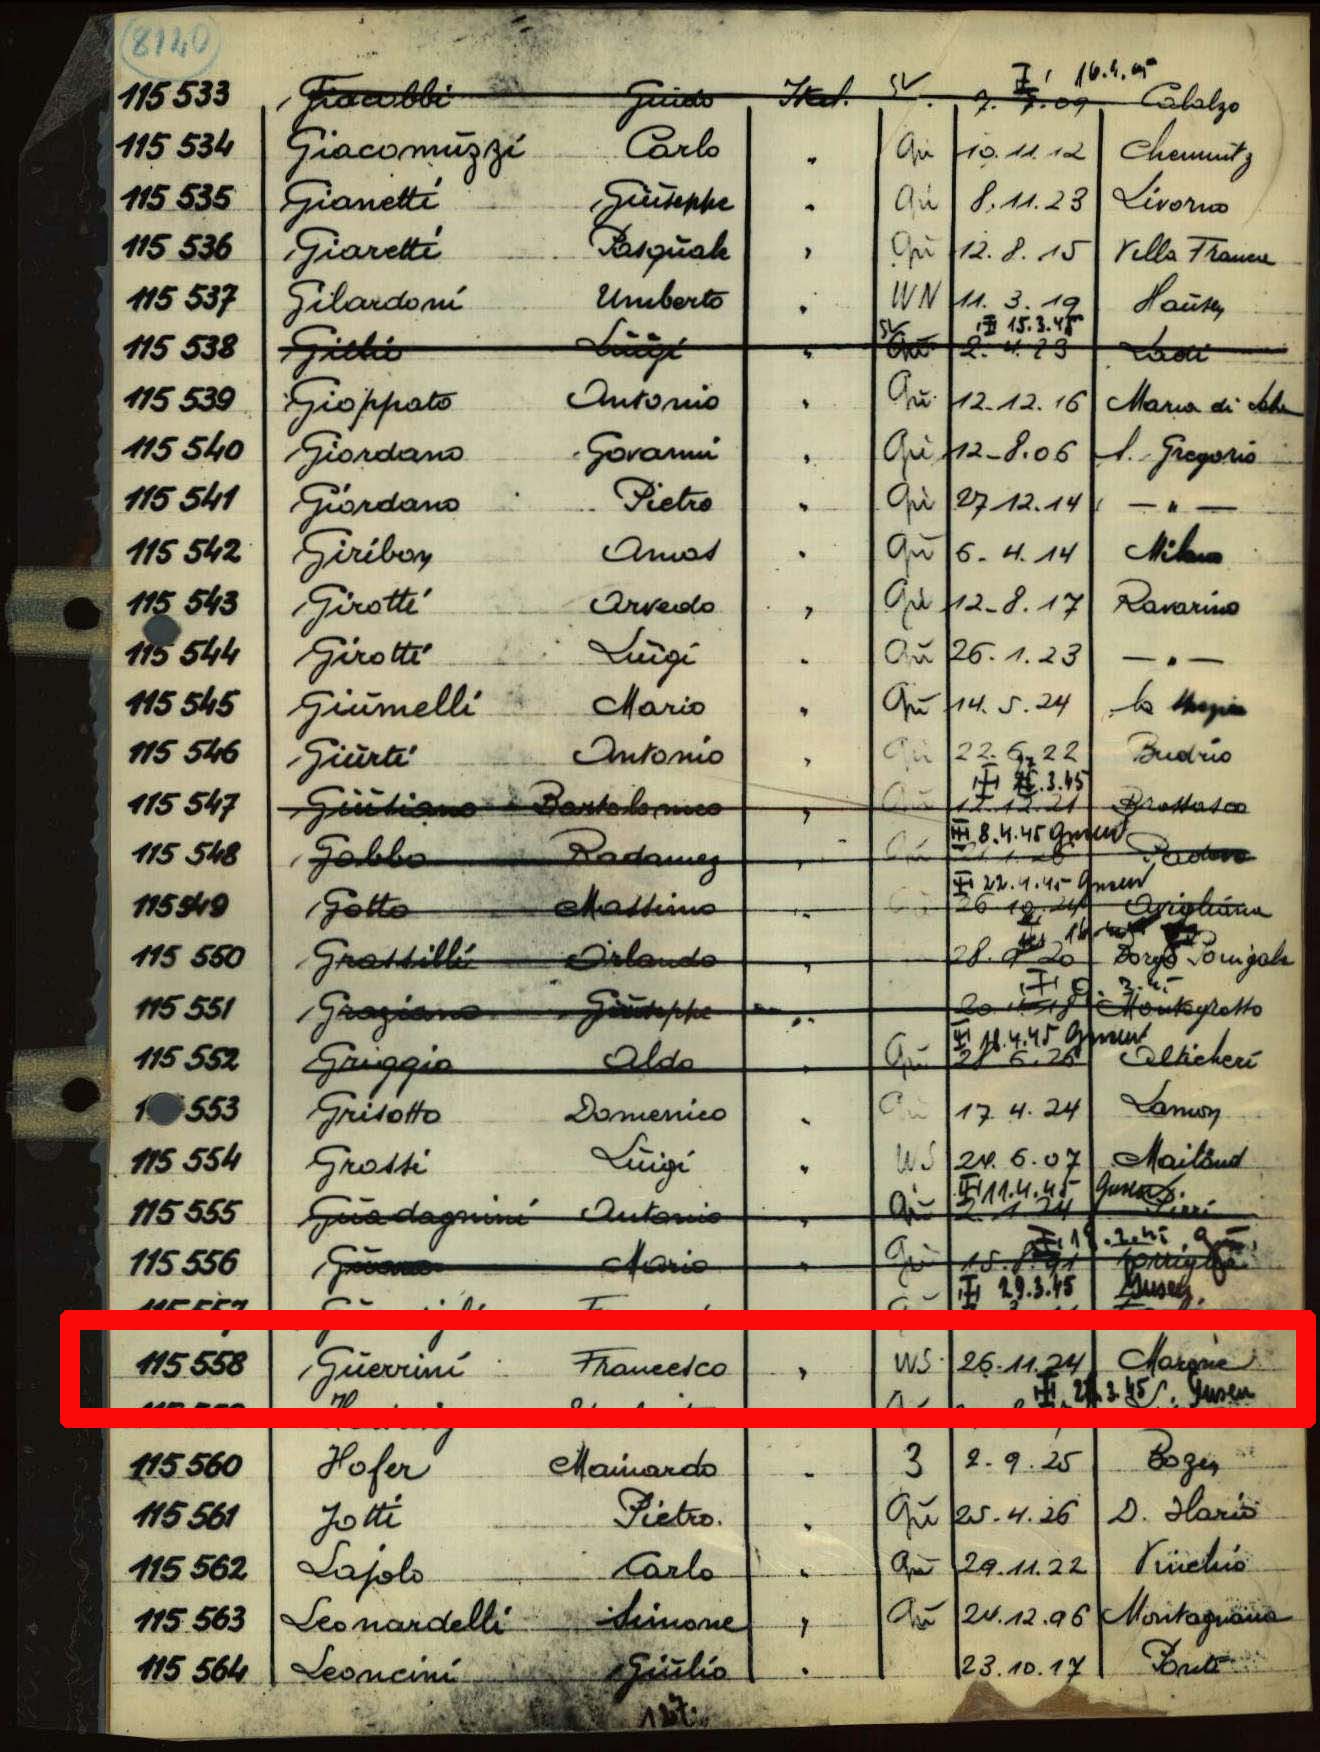 8120
I 16.4.45
115 533 Giacobbi Guido Ital. 7.7.09 Calalzo
115 534 Giacomuzzi Carlo " Gu 10.11.12 Chemnitz
115 535 Gianetti Giuseppe " Gu 8.11.23 Livorno
115 536 Giaretti Pasquale " Gu 12.8.15 Villa Franca
115 537 Gilardoni Umberto " WN 11.3.19 Hausen
III 15.3.45
115 538 Luigi " Gu 2.4.23 Ladi
115 539 Gioppato Antonio " Gu 12.12.16 Maria di
115 540 Giordano Govanni " Gu 12.8.06 S. Gregorio
115 541 Giordano Pietro " Gu 27.12.14 — " —
115 542 Giribon Amos " Gu 6.4.14 Milano
115 543 Girotti Arvedo " Gu 12.8.17 Ravarino
115 544 Girotti Luigi " Gu 26.1.23 — " —
115 545 Giumelli Mario " Gu 14.5.24 la
115 546 Giurti Antonio " Gu 22.6.22 Budrio
III .3.45
115 547 Giuliano Bartolomeo " Gu 12.12.21 Brossasco
III 8.4.45 Gusen
115 548 Gobbo Radames " Padova
III 22.4.45 Gusen
115 549 Gotto Massimo " 26.10.24 Avigliana
115 550 Grassilli Orlando " 28. 20 Borgo Panigale
115 551 Graziano Giuseppe " 20. 18 Montegrotto
III 18.4.45 Gusen
115 552 Griggio Aldo " Gu 28.6.26 Altichieri
115 553 Grisotto Domenico " Gu 17.4.24 Lamon
115 554 Grossi Luigi " WS 24.6.07 Mailand
III 11.4.45 Gusen
115 555 Guadagnini Antonio " Gu 2.1.24
115 556 Mario " Gu 15.8.
III 29.3.45 Gusen
115 557
115 558 Guerrini Francesco " WS 26.11.24
III 2 .3.45 Gusen
115 560 Hofer Mainardo " 3 2.9.25 Bozen
115 561 Jotti Pietro " Gu 25.4.26 D. Ilario
115 562 Lajolo Carlo " Gu 29.11.22 Vinchio
115 563 Leonardelli Simone " Gu 24.12.96 Montagnana
115 564 Leoncini Giulio " 23.10.17